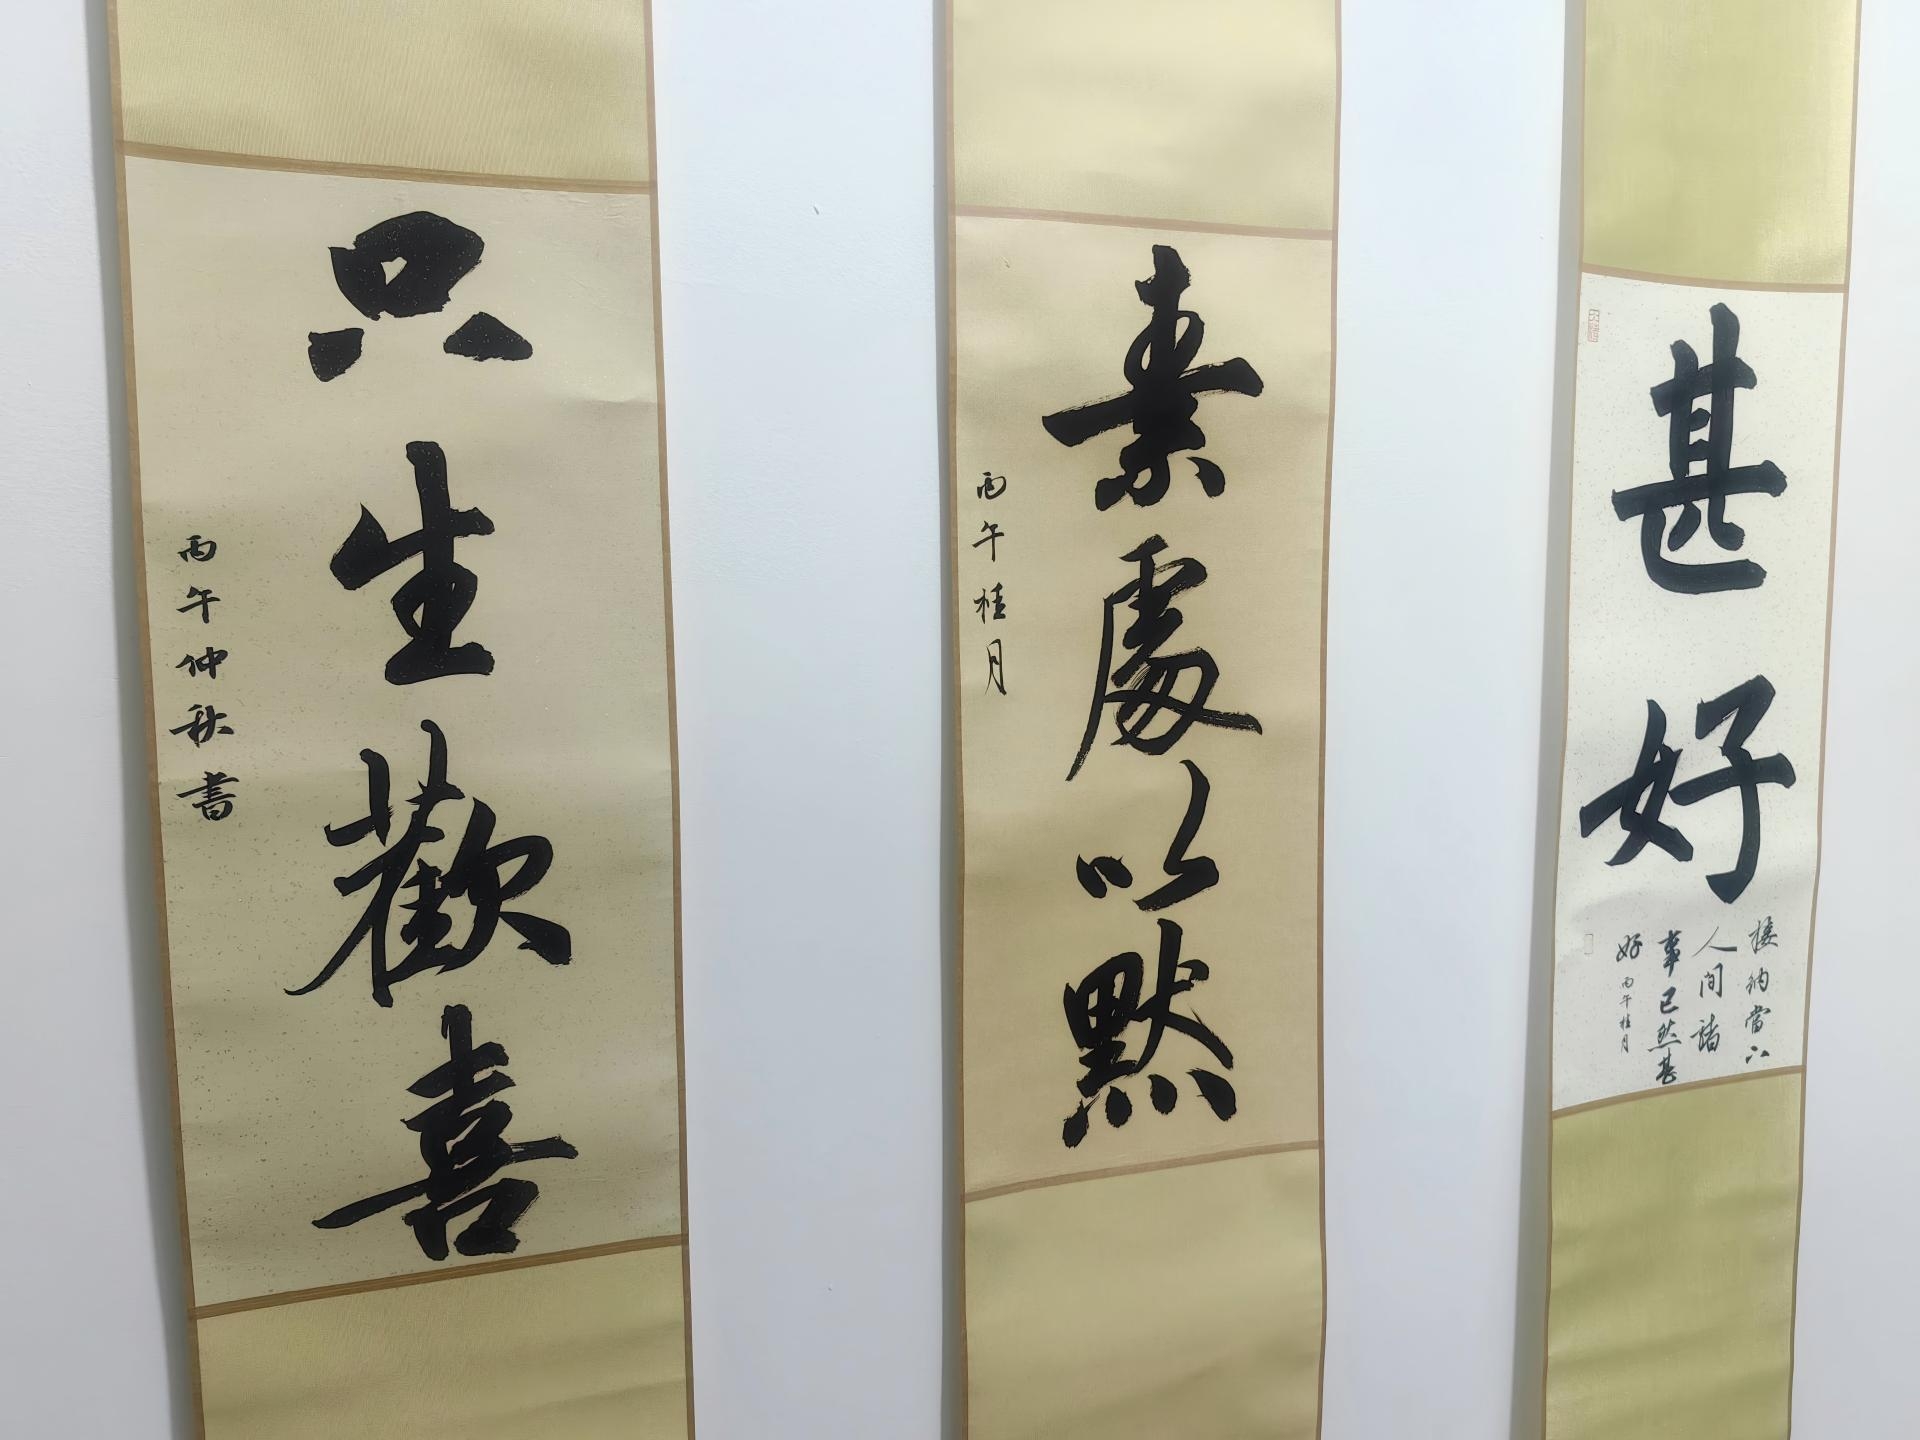 只生歡喜
丙午仲秋書
素處以默
丙午桂月
甚好
接納當下
人间諸
事已然甚
好 丙午桂月